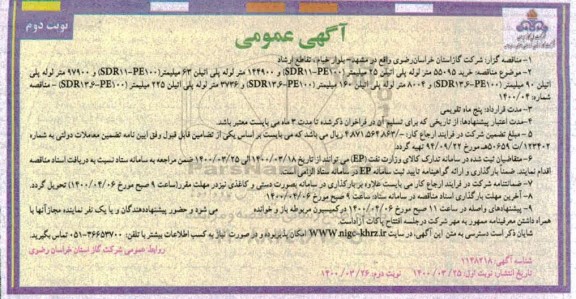 نوبت دوم
آگهی عمومی
۱- مناقصه گزار: شرکت گازاستان خراسان رضوی واقع در مشهد - بلوار خیام - تقاطع ارشاد
۲- موضوع مناقصه: خرید ۵۵۰۹۵ متر لوله پلی اتیلن ۲۵ میلیمتر(SDR11-PE100) و ۱۲۴۹۰۰ متر لوله پلی اتیلن ۶۳ میلیمتر(SDR11-PE100) و ۹۷۹۰۰ متر لوله پلی
اتیلن ۹۰ میلیمتر (SDR13.6-PE100) و ۸۰۰۴ متر لوله پلی اتیلن ۱۶۰ میلیمتر (SDR13.6-PE100) و ۳۷۳۶ متر لوله پلی اتیلن ۲۲۵ میلیمتر (SDR13.6-PE100) - مناقصه
شماره: ۱۴۰۰/۰۴
۳- مدت قرارداد: پنج ماه تقویمی
۴- مدت اعتبار پیشنهادها: از تاریخی که برای تسلیم آن در فراخوان ذکرشده تا مدت ۳ ماه می بایست معتبر باشد.
۵- مبلغ تضمین شرکت در فرایند ارجاع کار: ۴.۸۷۱.۵۶۴.۸۶۳/- ریال می باشد که می بایست بر اساس یکی از تضامین قابل قبول وفق آیین نامه تضمین معاملات دولتی به شماره
۱۲۳۴۰۲/ت۵۰۶۵۹هـ مورخ ۹۴/۰۹/۲۲ تهیه گردد.
۶- متقاضیان ثبت شده در سامانه تدارک کالای وزارت نفت (EP) می توانند از تاریخ ۱۴۰۰/۰۳/۱۸ الی ۱۴۰۰/۰۳/۲۵ ضمن مراجعه به سامانه ستاد نسبت به دریافت اسناد مناقصه
اقدام نمایند. ضمنا بارگذاری و ارائه گواهینامه تایید ثبت سامانه EP در سامانه ستاد الزامی است.
۷- ضمانتنامه شرکت در فرایند ارجاع کار می بایست علاوه بر بارگذاری در سامانه بصورت دستی و کاغذی نیزدر مهلت مقرر(ساعت ۹ صبح مورخ ۱۴۰۰/۰۴/۰۶) تحویل گردد.
۸- آخرین مهلت بارگذاری اسناد مناقصه در سامانه ستاد ساعت ۹ صبح مورخ ۱۴۰۰/۰۴/۰۶
۹- پیشنهادهای واصله در ساعت ۱۱ صبح مورخ ۱۴۰۰/۰۴/۰۶ درکمیسیون مربوطه باز و خوانده می شود و حضور پیشنهاددهندگان و یا یک نفر نماینده مجاز آنها با
همراه داشتن معرفینامه ممهور به مهر شرکت در جلسه افتتاح پاکات آزاد است.
شایان ذکر است دسترسی به متن این آگهی، در سایت WWW.nigc-khrz.ir امکان پذیربوده و در صورت نیاز به کسب اطلاعات بیشتر با تلفن: ۳۶۶۵۳۷۰۰-۰۵۱ تماس بگیرید.
روابط عمومی شرکت گاز استان خراسان رضوی
شناسه آگهی: ۱۱۴۸۲۱۸
تاریخ انتشار: نوبت اول: ۱۴۰۰/۰۳/۲۵ نوبت دوم: ۱۴۰۰/۰۳/۲۶